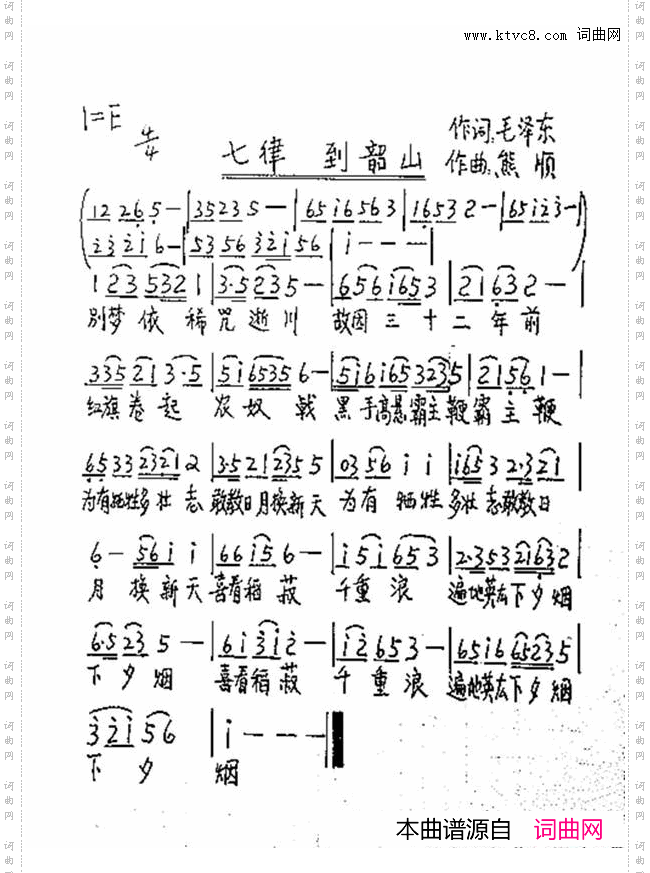 www.ktvc8.com 词曲网
1=E 4/4
七律 到韶山
作词:毛泽东
作曲:熊顺
(12 26 5 — | 35 23 5 — | 65 i6 56 3 | 16 53 2 — | 65 i2 3 — |
23 2i 6 — | 53 56 32i 56 | i — — — | )
1 23 532 1 | 3·5 23 5 — | 656 i65 3 | 21 63 2 — |
别梦依稀咒逝川 故园三十二年前
335 21 3·5 | 5i 6535 6 — | 5i6i 65 323 5 | 21 56 1 — |
红旗卷起 农奴戟 黑手高悬霸主鞭霸主鞭
65 33 23 21 2 | 3·5 21 235 5 | 03 56 i i | i65 3 2·3 21 |
为有牺牲多壮志 敢教日月换新天 为有牺牲多壮志敢教日
6 — 56 i i | 66 i5 6 — | i 5 i 65 3 | 2·3 53 2163 2 |
月换新天喜看稻菽 千重浪 遍地英雄下夕烟
6·5 23 5 — | 6i 3i 2 — | i2 65 3 — | 65 i6 6523 5 |
下夕烟 喜看稻菽 千重浪 遍地英雄下夕烟
32i 56 | i — — — |
下夕 烟
本曲谱源自 词曲网
词曲网